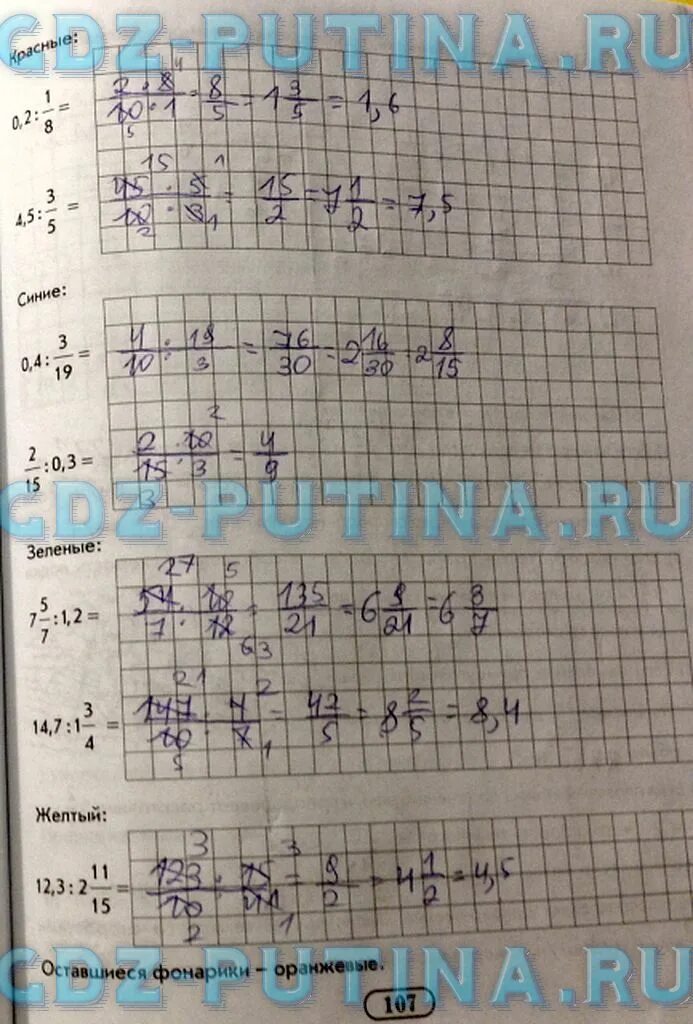 GDZ-PUTINA.RU
Красные:
0,2 : 1/8 = (2 · 8)/(10 · 1) = 8/5 = 1 3/5 = 1,6
4,5 : 3/5 = (45 · 5)/(10 · 3) = 15/2 = 7 1/2 = 7,5
Синие:
0,4 : 3/19 = 4/10 : 19/3 = 76/30 = 2 16/30 = 2 8/15
2/15 : 0,3 = (2 · 10)/(15 · 3) = 4/9
GDZ-PUTINA.RU
Зеленые:
7 5/7 : 1,2 = (54 · 10)/(7 · 12) = 135/21 = 6 9/21 = 6 3/7
14,7 : 1 3/4 = (147 · 4)/(10 · 7) = 42/5 = 8 2/5 = 8,4
Желтый:
12,3 : 2 11/15 = (123 · 15)/(10 · 41) = 9/2 = 4 1/2 = 4,5
Оставшиеся фонарики – оранжевые.
GDZ-PUTINA.RU
107